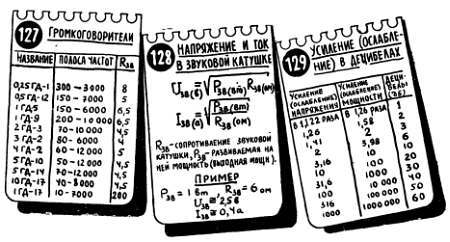 127
ГРОМКОГОВОРИТЕЛИ
НАЗВАНИЕ ПОЛОСА ЧАСТОТ Rзв
0,25ГД-1 300 – 3000 8
0,5ГД-12 150 – 7000 5
1 ГД5 150 – 6000 6,5
1 ГД-9 200 – 10 000 6,5
2 ГД-3 70 – 10000 4,5
3 ГД-2 80 – 6000 4
4 ГД-2 50 – 12 000 5
5 ГД-10 50 – 12000 4,5
5 ГД-14 70 – 12000 4,5
10 ГД-17 40 – 8000 4,5
1 ГД-17 10 – 7000 280
128
НАПРЯЖЕНИЕ И ТОК
В ЗВУКОВОЙ КАТУШКЕ
Uзв(в) = √Pзв(вт) Rзв(ом)
Iзв(а) = √Pзв(вт) / Rзв(ом)
Rзв – СОПРОТИВЛЕНИЕ ЗВУКОВОЙ
КАТУШКИ, Pзв – РАЗВИВАЕМАЯ НА
НЕЙ МОЩНОСТЬ (ВЫХОДНАЯ МОЩН.)
ПРИМЕР
Pзв = 1 вт Rзв = 6 ом
Uзв ≅ 2,5 в
Iзв ≅ 0,4 а
129
УСИЛЕНИЕ (ОСЛАБЛЕ-
НИЕ) В ДЕЦИБЕЛАХ
УСИЛЕНИЕ (ОСЛАБЛЕНИЕ) НАПРЯЖЕНИЯ УСИЛЕНИЕ (ОСЛАБЛЕНИЕ) МОЩНОСТИ ДЕЦИ-БЕЛЫ
В 1,122 РАЗА В 1,26 РАЗА 1
1,26 1,58 2
1,41 2 3
2 3,98 6
3,16 10 10
10 100 20
31,6 1000 30
100 10 000 40
316 100 000 50
1000 1000 000 60